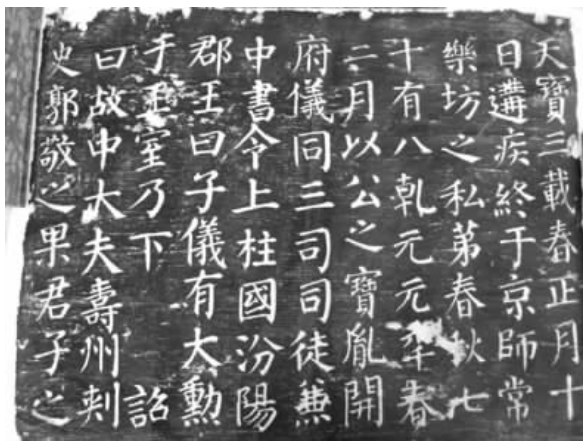 天寶三載春正月十
日遘疾終于京師常
樂坊之私第春秋七
十有八乹元元年春
二月以公之 寶胤開
府儀同三司司徒兼
中書令上柱國汾陽
郡王曰子儀有大勳
于王室乃下 詔
曰故中大夫壽州刺
史郭敬之果君子之